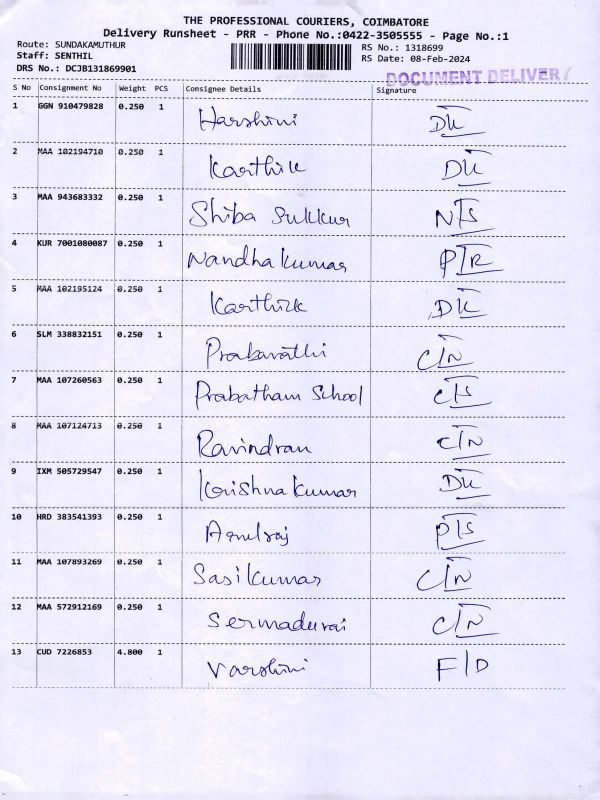 THE PROFESSIONAL COURIERS, COIMBATORE
Delivery Runsheet - PRR - Phone No.:0422-3505555 - Page No.:1
Route: SUNDAKAMUTHUR RS No.: 1318699
Staff: SENTHIL RS Date: 08-Feb-2024
DRS No.: DCJB131869901
DOCUMENT DELIVERY
S No Consignment No Weight PCS Consignee Details Signature
1 GGN 910479828 0.250 1 Harshini DK
2 MAA 102194710 0.250 1 Karthik DK
3 MAA 943683332 0.250 1 Shiba Sukkur N/S
4 KUR 7001080087 0.250 1 Nandhakumar P/R
5 MAA 102195124 0.250 1 Karthik DK
6 SLM 338832151 0.250 1 Prabavathi C/N
7 MAA 107260563 0.250 1 Prabatham School C/S
8 MAA 107124713 0.250 1 Ravindran C/N
9 IXM 505729547 0.250 1 Krishnakumar DK
10 HRD 383541393 0.250 1 P/S
11 MAA 107893269 0.250 1 Sasikumar C/N
12 MAA 572912169 0.250 1 Sermadurai C/N
13 CUD 7226853 4.800 1 Varshini F/D